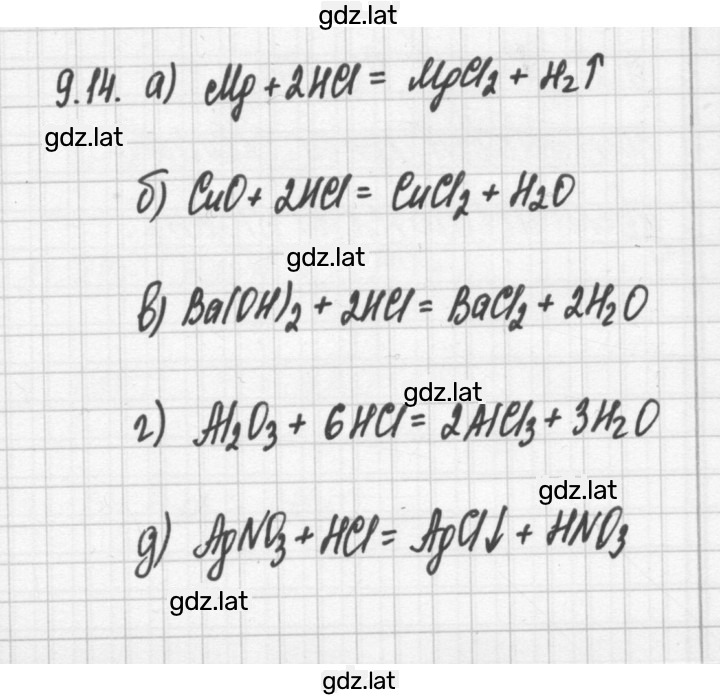 gdz.lat
9.14. а) Mg + 2HCl = MgCl₂ + H₂↑
gdz.lat
б) CuO + 2HCl = CuCl₂ + H₂O
gdz.lat
в) Ba(OH)₂ + 2HCl = BaCl₂ + 2H₂O
gdz.lat
г) Al₂O₃ + 6HCl = 2AlCl₃ + 3H₂O
gdz.lat
д) AgNO₃ + HCl = AgCl↓ + HNO₃
gdz.lat
gdz.lat